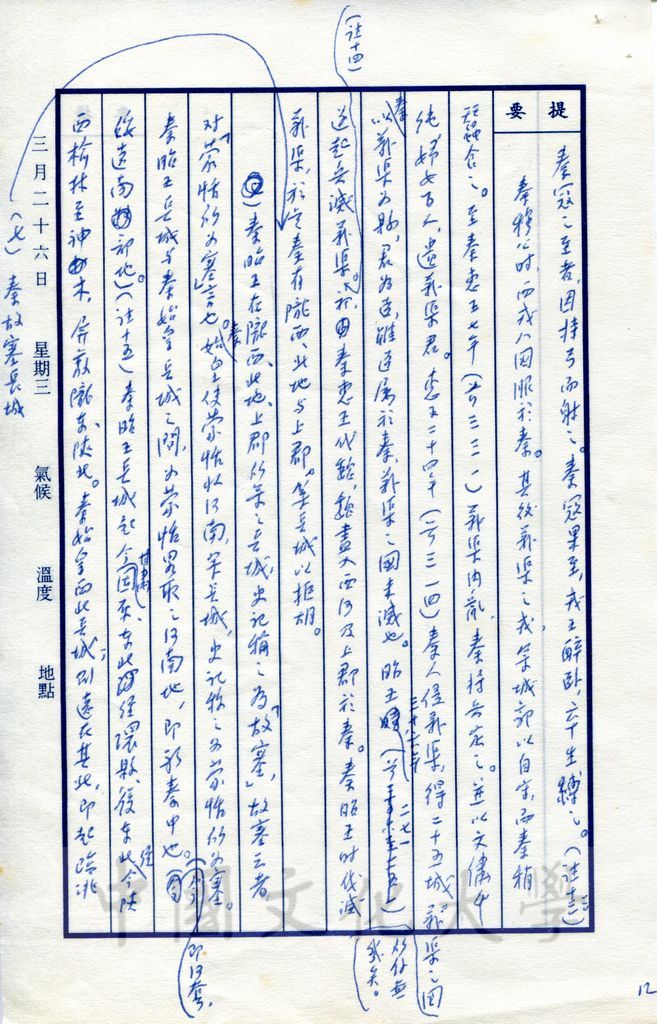 提要
秦寇之至者,因持弓而射之。秦寇果至,戎王醉卧,卒生縛之。(註十三)
秦穆公時,西戎八國服於秦。其後義渠之戎,築城郭以自守,而秦稍
蠶食之。至秦惠王七年(前三三一)義渠内亂,秦將兵定之。並以文繡千
純,婦女百人,遺義渠君。惠王二十四年(前三一四)秦人侵義渠,得二十五城。義渠之國
以義渠為縣,君為臣,雖通屬於秦,義渠之國未滅也。昭王三十六年(前二七一)
所存無幾矣。
(註十四)
遂起兵滅義渠。秦惠王伐魏,魏盡入西河及上郡於秦。秦昭王時伐滅
義渠,於是秦有隴西、北地與上郡。築長城以拒胡。
秦昭王在隴西、北地、上郡所築之長城,史記稱之為「故塞」,故塞云者
對「蒙恬所為塞」言也。秦始皇使蒙恬收河南,築長城,史記稱之為蒙恬所為塞。
秦昭王長城與秦始皇長城之間,為蒙恬略取之河南地,即新秦中也。(即河套,
綏遠南部地)。(註十五)秦昭王長城起今甘肅東北經環縣,後東北經今陝
西榆林至神木,屏蔽隴東陝北。秦始皇西北長城,則遠在其北,即起臨洮
三月二十六日 星期三 氣候 溫度 地點
(七)秦故塞長城
中國文化大學
12